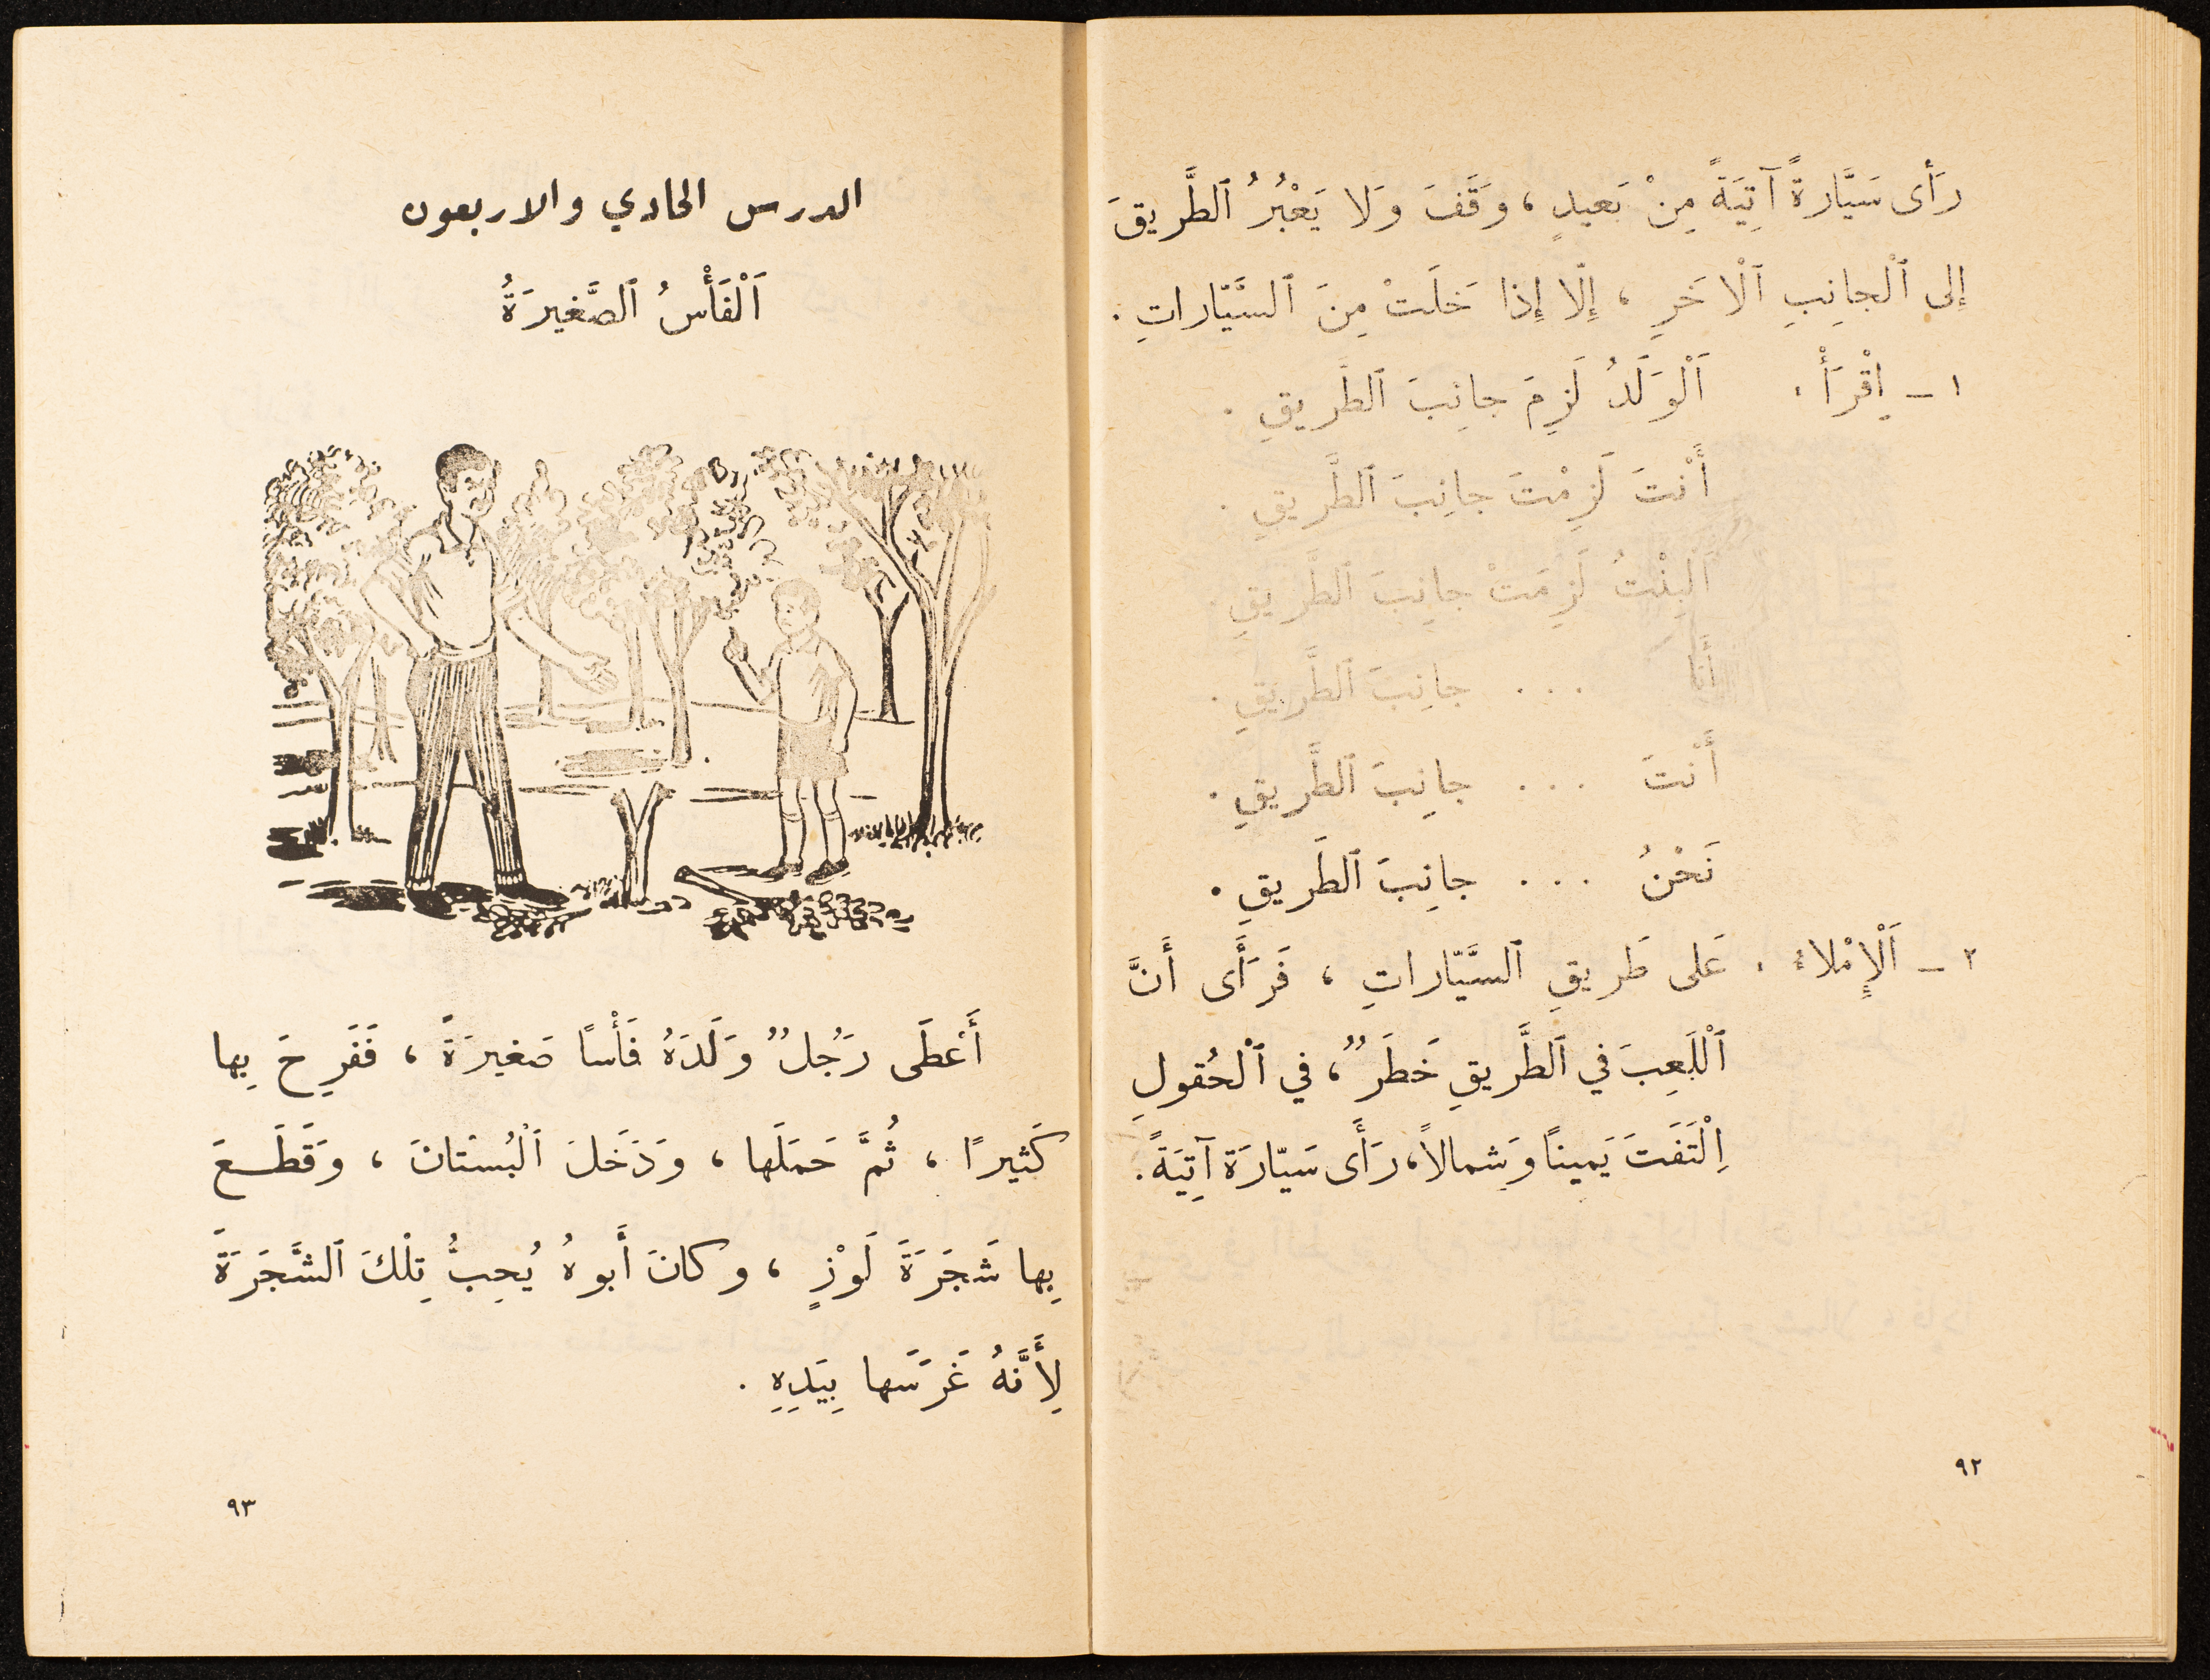 رَأى سَيَّارةً آتِيَةً مِنْ بَعيدٍ ، وَقَّفَ وَلا يَعْبُرُ ٱلطَّريقَ
إلى ٱلْجانِبِ ٱلْاخَرِ ، إِلّا إِذا خَلَتْ مِنَ ٱلسَّيّاراتِ .
١ - اِقْرَأْ : اَلْوَلَدُ لَزِمَ جانِبَ ٱلطَّريقِ .
أَنْتَ لَزِمْتَ جانِبَ ٱلطَّريقِ .
اَلْبِنْتُ لَزِمَتْ جانِبَ ٱلطَّريقِ .
أَنا . . . جانِبَ ٱلطَّريقِ .
أَنْتَ . . . جانِبَ ٱلطَّريقِ .
نَحْنُ . . . جانِبَ ٱلطَريقِ .
٢ - اَلْإِمْلاءُ : عَلى طَريقِ ٱلسَّيّاراتِ ، فَرَأَى أَنَّ
ٱلْلَعِبَ في ٱلطَّريقِ خَطَرٌ ، في ٱلْحُقولِ
اِلْتَفَتَ يَمينًا وَشِمالاً ، رَأَى سَيّارَة آتِيَةً .
٩٢
الدرس الحادي والاربعون
اَلْفَأْسُ ٱلصَّغيرَةُ
أَعْطَى رَجُلٌ وَلَدَهُ فَأْسًا صَغيرَةً ، فَفَرِحَ بِها
كَثيرًا ، ثُمَّ حَمَلَها ، وَدَخَلَ ٱلْبُسْتانَ ، وَقَطَعَ
بِها شَجَرَةَ لَوْزٍ ، وكانَ أَبوهُ يُحِبُّ تِلْكَ ٱلشَّجَرَةَ
لِأَنَّهُ غَرَسَها بِيَدِهِ .
٩٣